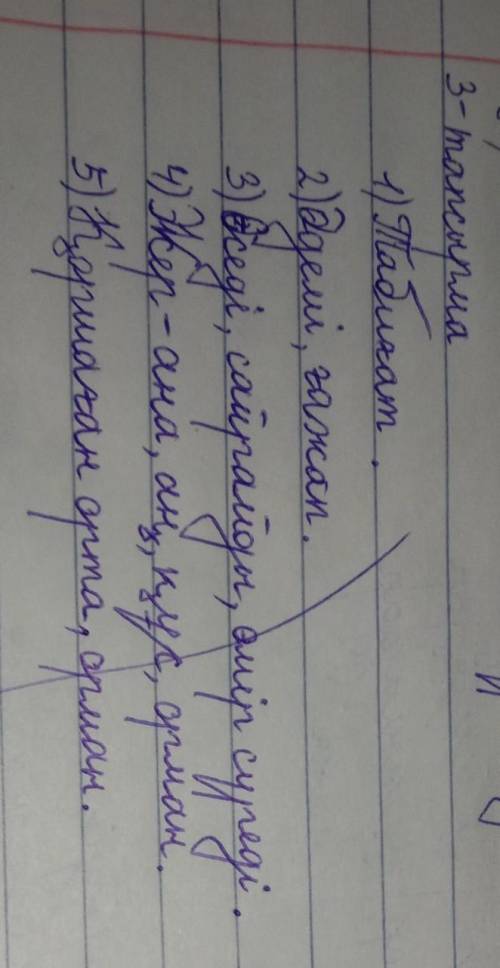 3-тапсырма
1) Табиғат.
2) Әдемі, ғажап.
3) Өседі, сайрайды, өмір сүреді.
4) Жер-ана, аң, құс, орман.
5) Қоршаған орта, орман.